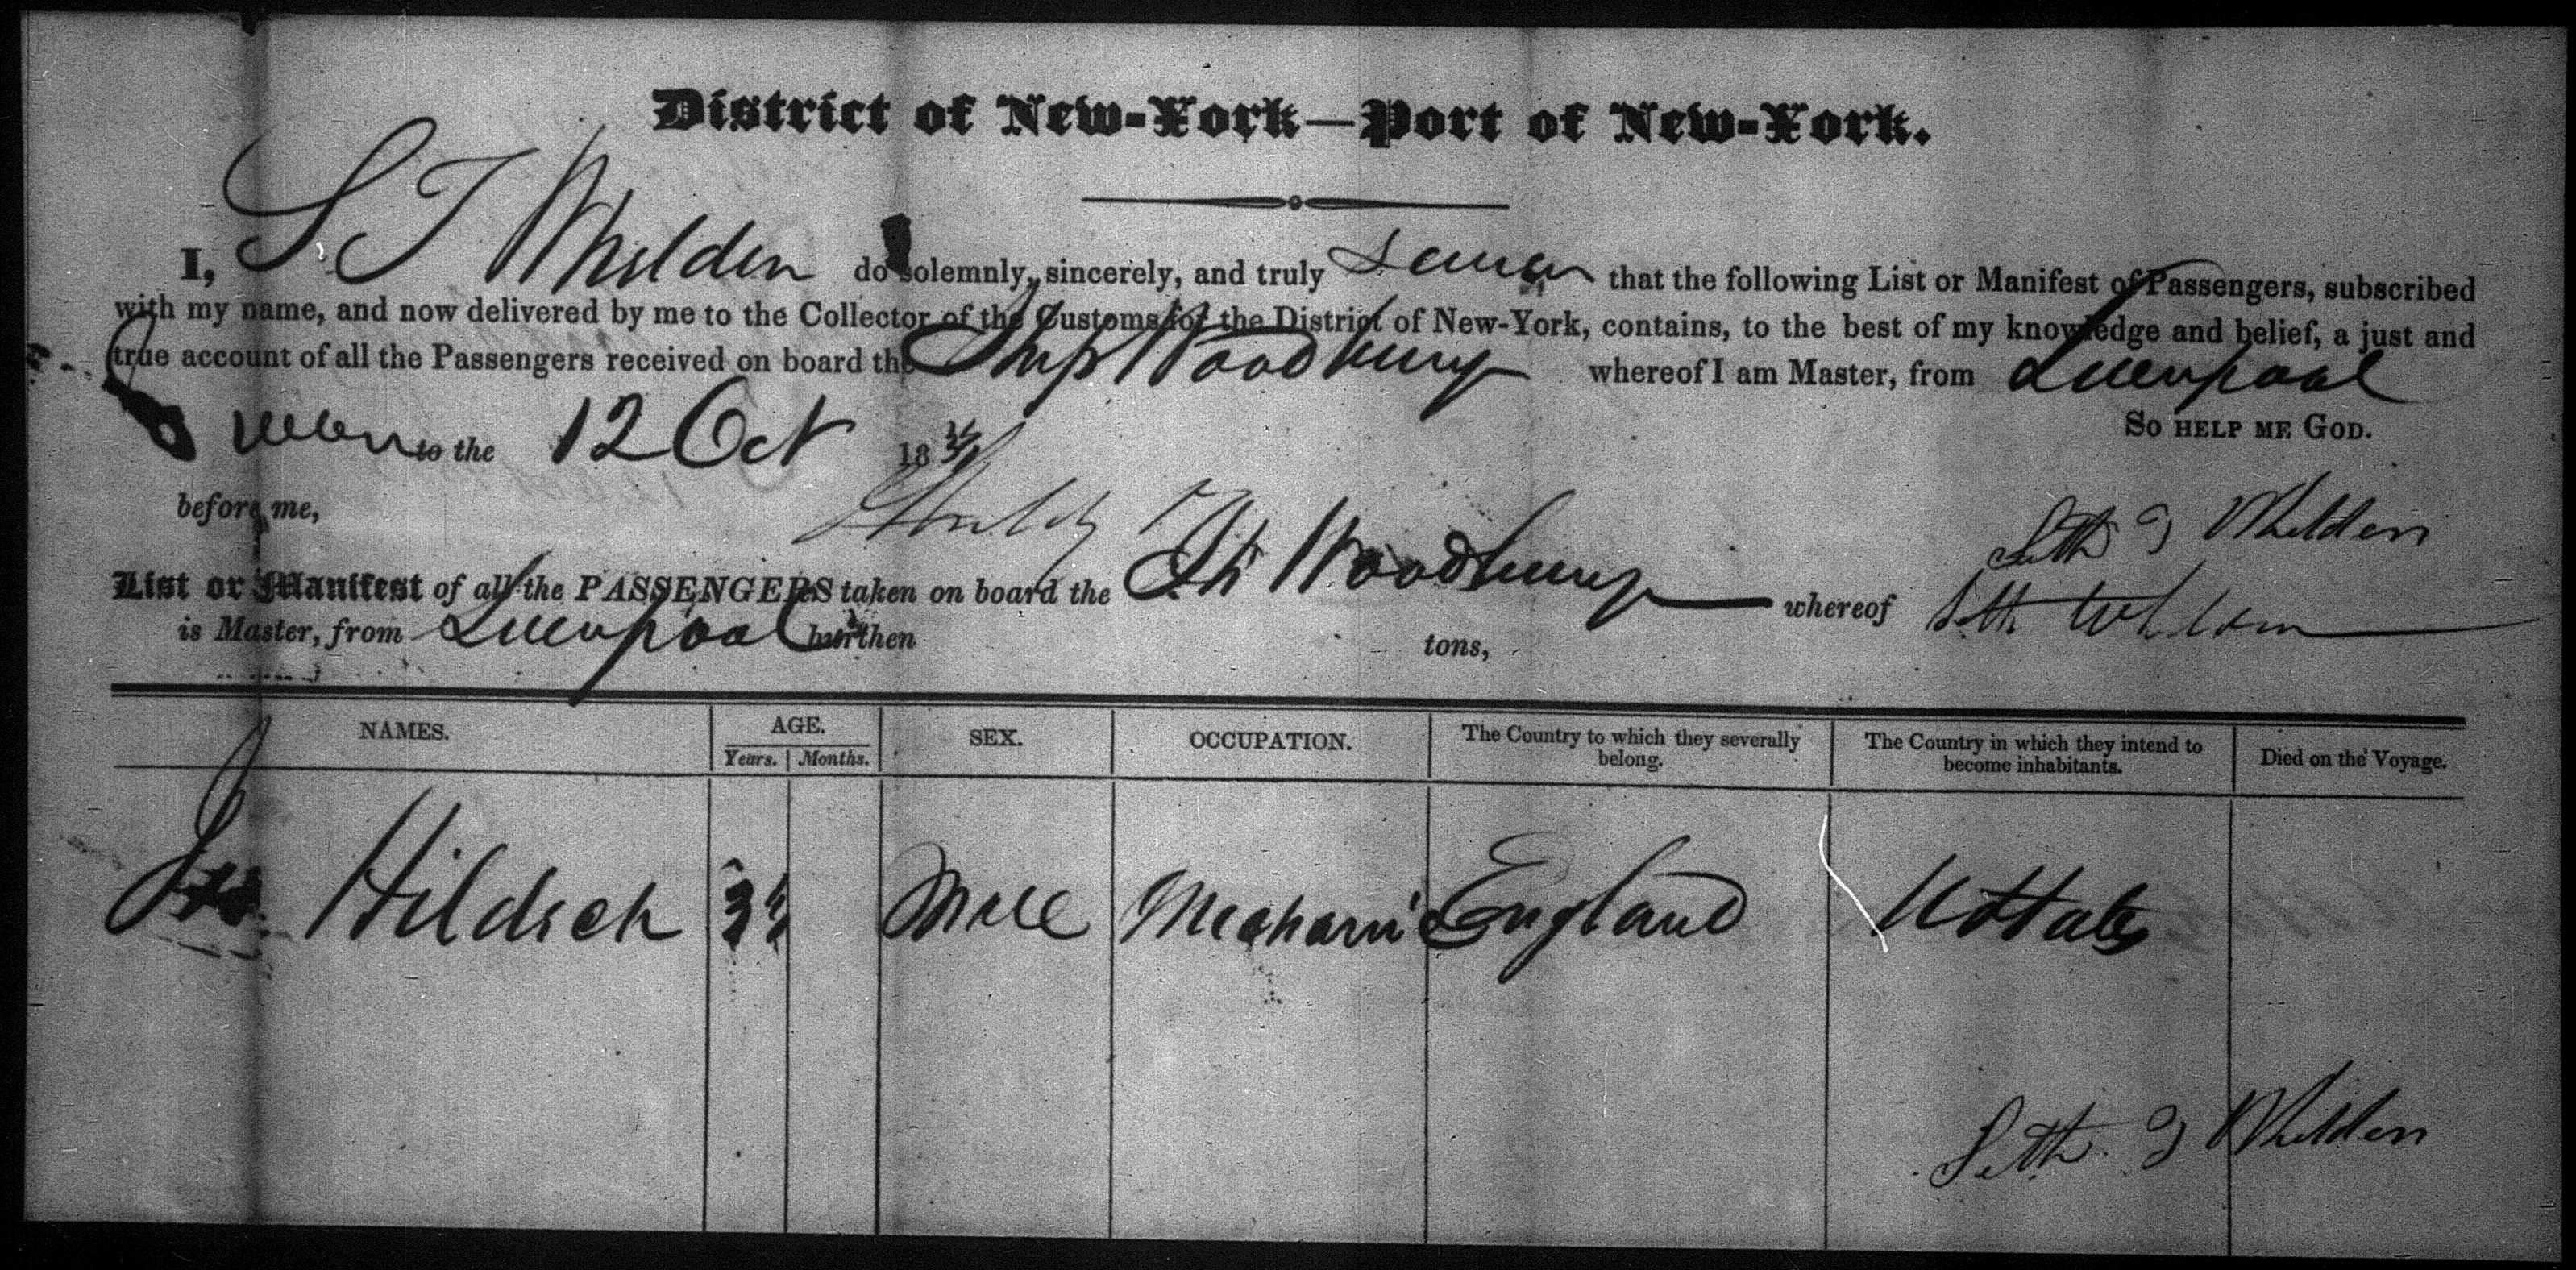 District of New-York—Port of New-York.
I, S T Whelden do solemnly, sincerely, and truly swear that the following List or Manifest of Passengers, subscribed
with my name, and now delivered by me to the Collector of the Customs for the District of New-York, contains, to the best of my knowledge and belief, a just and
true account of all the Passengers received on board the Ship Woodbury whereof I am Master, from Liverpool
So help me God.
to the 12 Oct 18
before me,
Seth T Whelden
List or Manifest of all the PASSENGERS taken on board the Sh Woodbury whereof Seth Whelden
is Master, from Liverpool burthen tons,
NAMES. AGE. SEX. OCCUPATION. The Country to which they severally belong. The Country in which they intend to become inhabitants. Died on the Voyage.
Years. Months.
Hildich Male Mechanic England U States
Seth T Whelden